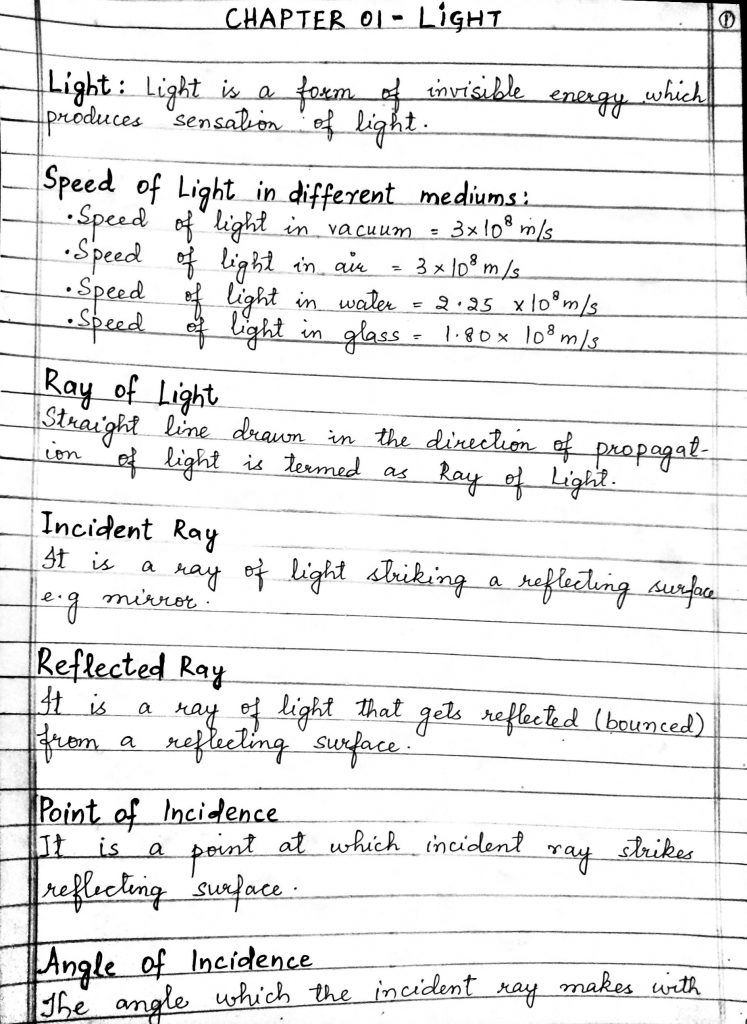 CHAPTER 01 - LiGHT
①
Light: Light is a form of invisible energy which
produces sensation of light.
Speed of Light in different mediums:
• Speed of light in vacuum = 3×10⁸ m/s
• Speed of light in air = 3×10⁸ m/s
• Speed of light in water = 2.25 ×10⁸ m/s
• Speed of light in glass = 1.80× 10⁸ m/s
Ray of Light
Straight line drawn in the direction of propagat-
ion of light is termed as Ray of Light.
Incident Ray
It is a ray of light striking a reflecting surface
e.g mirror.
Reflected Ray
It is a ray of light that gets reflected (bounced)
from a reflecting surface.
Point of Incidence
It is a point at which incident ray strikes
reflecting surface.
Angle of Incidence
The angle which the incident ray makes with